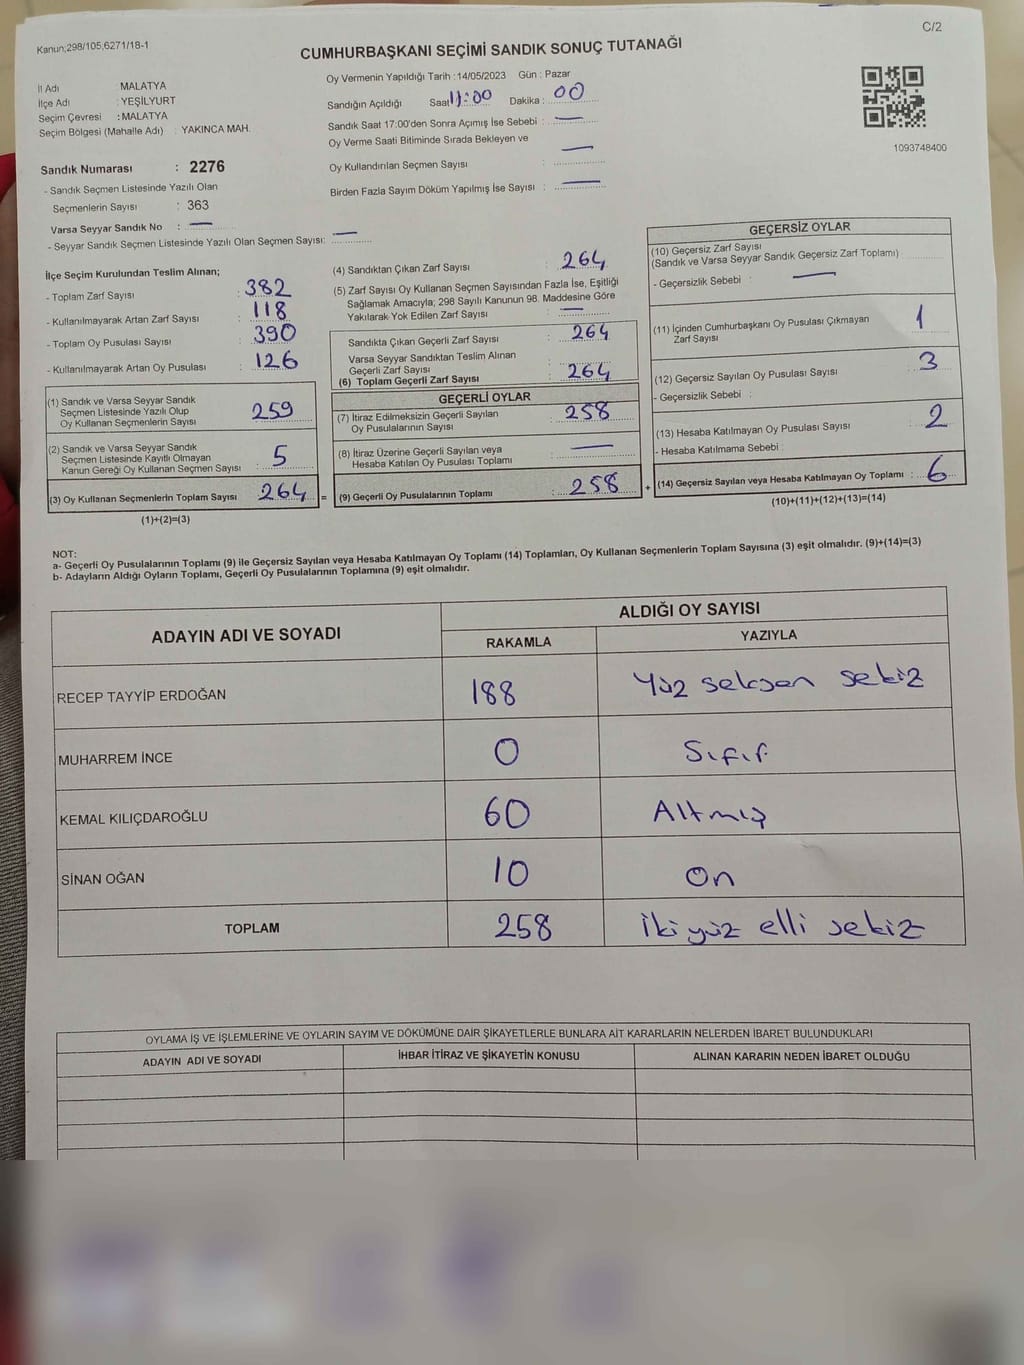 C/2
Kanun;298/105,6271/18-1
CUMHURBAŞKANI SEÇİMİ SANDIK SONUÇ TUTANAĞI
İl Adı MALATYA
İlçe Adı : YEŞİLYURT
Seçim Çevresi : MALATYA
Seçim Bölgesi (Mahalle Adı) : YAKINCA MAH.
Oy Vermenin Yapıldığı Tarih :14/05/2023 Gün : Pazar
Sandığın Açıldığı Saat 17:00 Dakika : 00
Sandık Saat 17:00'den Sonra Açımış İse Sebebi : —
Oy Verme Saati Bitiminde Sırada Bekleyen ve
Oy Kullandırılan Seçmen Sayısı : —
Birden Fazla Sayım Döküm Yapılmış İse Sayısı : —
1093748400
Sandık Numarası : 2276
- Sandık Seçmen Listesinde Yazılı Olan
Seçmenlerin Sayısı : 363
Varsa Seyyar Sandık No : —
- Seyyar Sandık Seçmen Listesinde Yazılı Olan Seçmen Sayısı: —
İlçe Seçim Kurulundan Teslim Alınan;
- Toplam Zarf Sayısı : 382
- Kullanılmayarak Artan Zarf Sayısı : 118
- Toplam Oy Pusulası Sayısı : 390
- Kullanılmayarak Artan Oy Pusulası : 126
(1) Sandık ve Varsa Seyyar Sandık
Seçmen Listesinde Yazılı Olup
Oy Kullanan Seçmenlerin Sayısı : 259
(2) Sandık ve Varsa Seyyar Sandık
Seçmen Listesinde Kayıtlı Olmayan
Kanun Gereği Oy Kullanan Seçmen Sayısı : 5
(3) Oy Kullanan Seçmenlerin Toplam Sayısı : 264 =
(1)+(2)=(3)
(4) Sandıktan Çıkan Zarf Sayısı : 264
(5) Zarf Sayısı Oy Kullanan Seçmen Sayısından Fazla İse, Eşitliği
Sağlamak Amacıyla; 298 Sayılı Kanunun 98. Maddesine Göre
Yakılarak Yok Edilen Zarf Sayısı : —
Sandıkta Çıkan Geçerli Zarf Sayısı : 264
Varsa Seyyar Sandıktan Teslim Alınan
Geçerli Zarf Sayısı :
(6) Toplam Geçerli Zarf Sayısı : 264
GEÇERLİ OYLAR
(7) İtiraz Edilmeksizin Geçerli Sayılan
Oy Pusulalarının Sayısı : 258
(8) İtiraz Üzerine Geçerli Sayılan veya
Hesaba Katılan Oy Pusulası Toplamı : —
(9) Geçerli Oy Pusulalarının Toplamı : 258 +
GEÇERSİZ OYLAR
(10) Geçersiz Zarf Sayısı
(Sandık ve Varsa Seyyar Sandık Geçersiz Zarf Toplamı) :
- Geçersizlik Sebebi : —
(11) İçinden Cumhurbaşkanı Oy Pusulası Çıkmayan
Zarf Sayısı : 1
(12) Geçersiz Sayılan Oy Pusulası Sayısı : 3
- Geçersizlik Sebebi :
(13) Hesaba Katılmayan Oy Pusulası Sayısı : 2
- Hesaba Katılmama Sebebi :
(14) Geçersiz Sayılan veya Hesaba Katılmayan Oy Toplamı : 6
(10)+(11)+(12)+(13)=(14)
NOT:
a- Geçerli Oy Pusulalarının Toplamı (9) ile Geçersiz Sayılan veya Hesaba Katılmayan Oy Toplamı (14) Toplamları, Oy Kullanan Seçmenlerin Toplam Sayısına (3) eşit olmalıdır. (9)+(14)=(3)
b- Adayların Aldığı Oyların Toplamı, Geçerli Oy Pusulalarının Toplamına (9) eşit olmalıdır.
ADAYIN ADI VE SOYADI ALDIĞI OY SAYISI
RAKAMLA YAZIYLA
RECEP TAYYİP ERDOĞAN 188 Yüz seksen sekiz
MUHARREM İNCE 0 Sıfır
KEMAL KILIÇDAROĞLU 60 Altmış
SİNAN OĞAN 10 On
TOPLAM 258 İki yüz elli sekiz
OYLAMA İŞ VE İŞLEMLERİNE VE OYLARIN SAYIM VE DÖKÜMÜNE DAİR ŞİKAYETLERLE BUNLARA AİT KARARLARIN NELERDEN İBARET BULUNDUKLARI
ADAYIN ADI VE SOYADI İHBAR İTİRAZ VE ŞİKAYETİN KONUSU ALINAN KARARIN NEDEN İBARET OLDUĞU